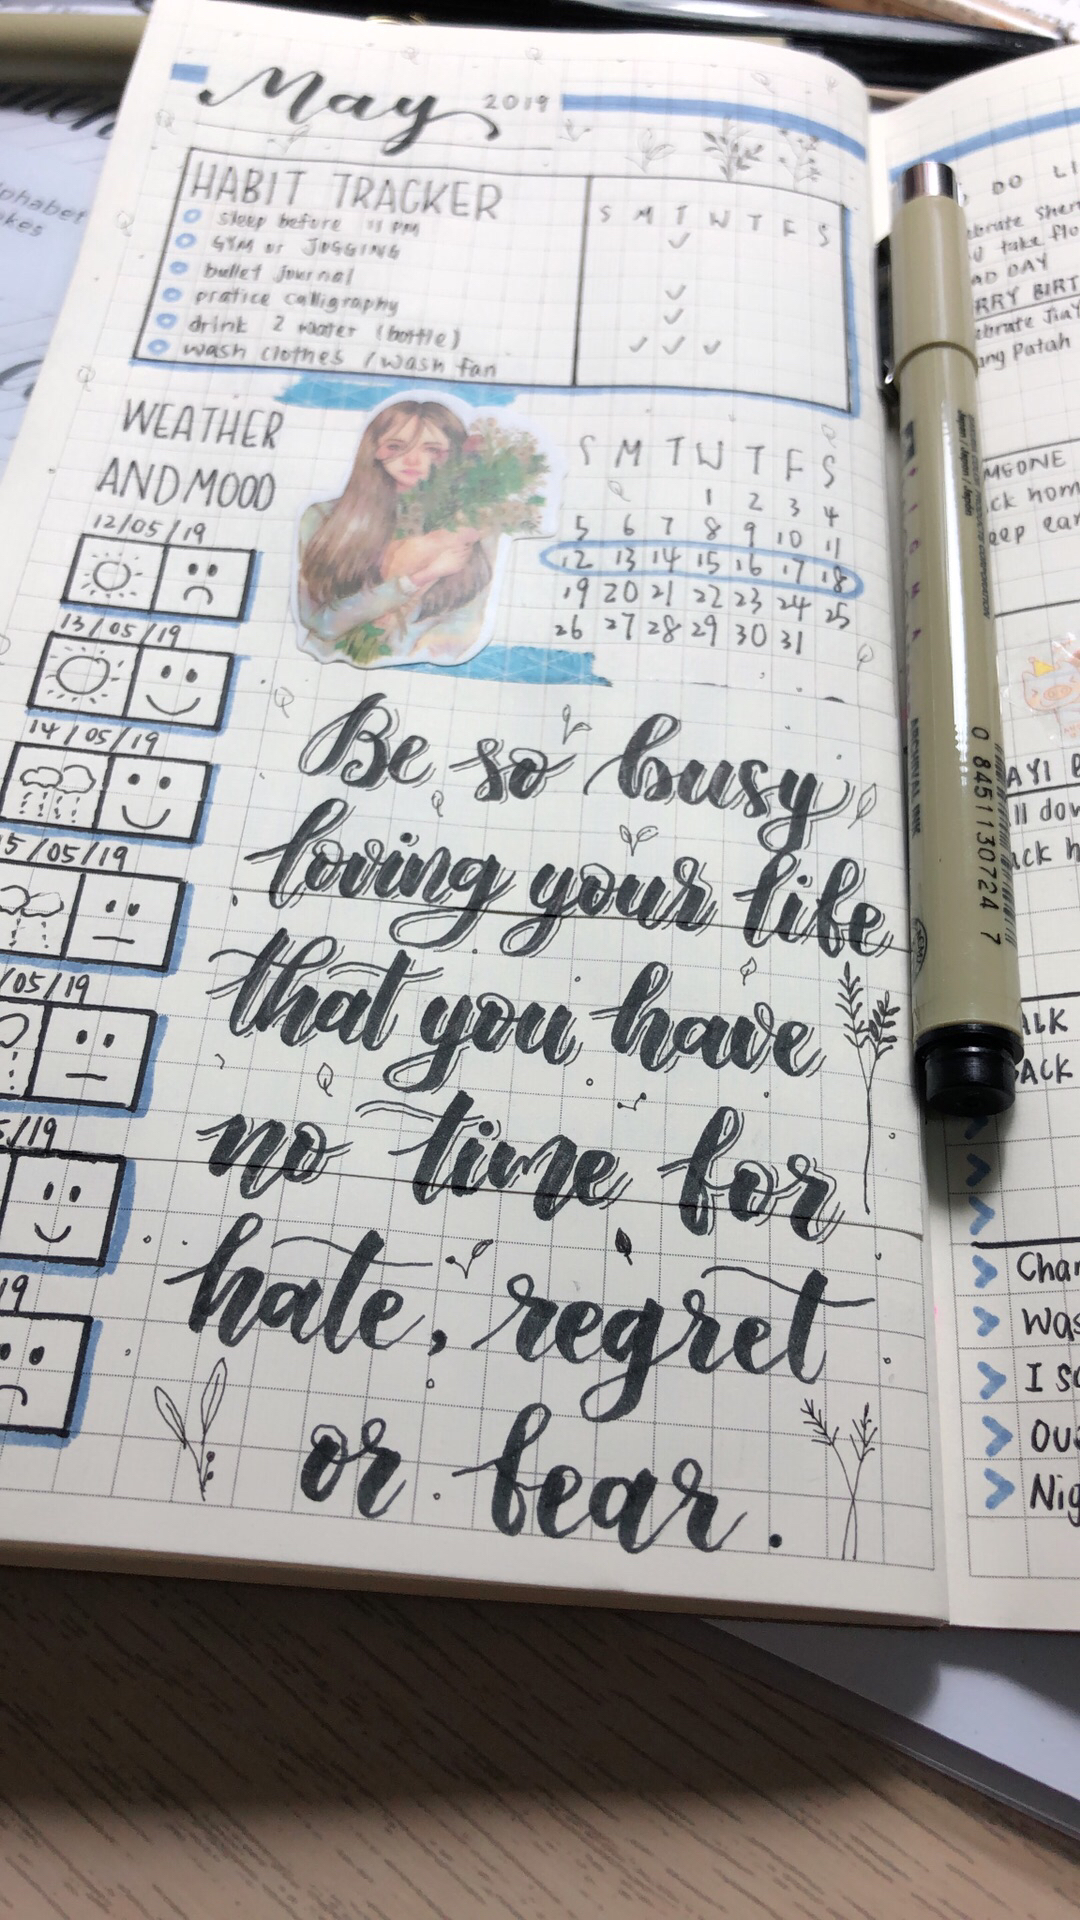 May 2019
HABIT TRACKER
S M T W T F S
sleep before 11 PM
GYM or JOGGING
bullet journal
pratice calligraphy
drink 2 water (bottle)
wash clothes / wash fan
WEATHER
AND MOOD
12/05/19
13/05/19
14/05/19
5/05/19
/05/19
5/19
19
S M T W T F S
1 2 3 4
5 6 7 8 9 10 11
12 13 14 15 16 17 18
19 20 21 22 23 24 25
26 27 28 29 30 31
Be so busy
loving your life
that you have
no time for
hate, regret
or fear.
0 84511 30724 7
DO LI
ebrate Sher
take flo
AD DAY
RRY BIRT
ebrate JiaY
ang Patah
MEONE
ck hom
eep ear
AYI B
ll dow
ack h
ALK
BACK
Char
Was
I so
Ous
Nig
phabet
kes